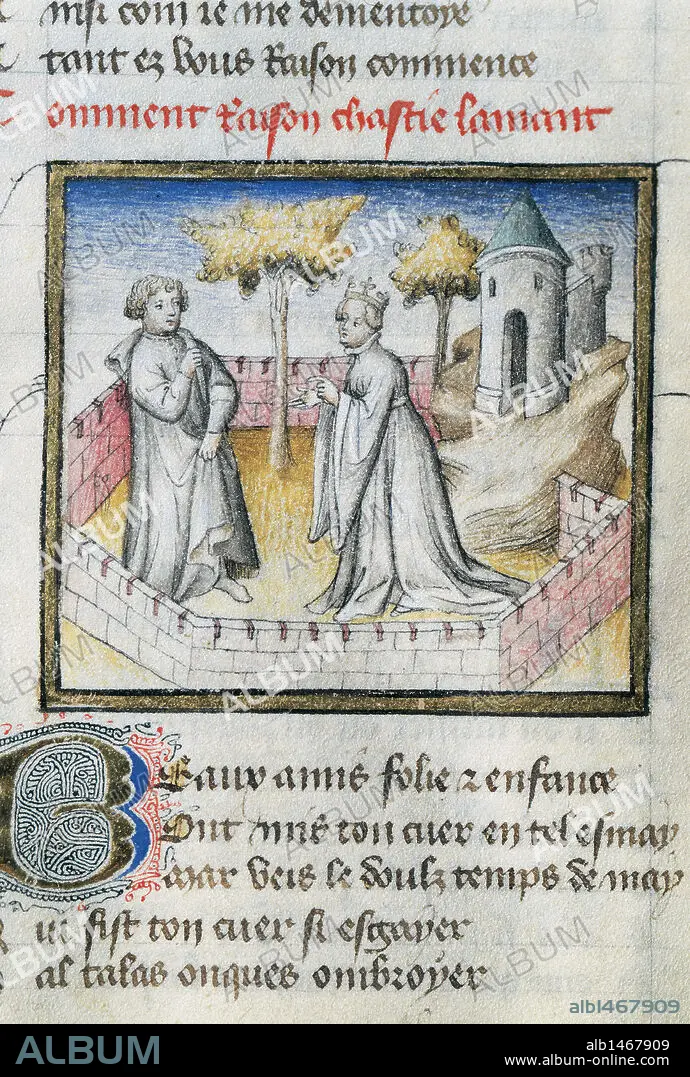 nsi com ie me dementoye
tant ez vous Raison commence
Comment Raison chastie lamant
BEaux amis folie & enfance
Ont mis ton cuer en tel esmay
Mar veis le doulz temps de may
ui fist ton cuer si esgayer
al talas onques ombroyer
ALBUM
alb1467909
ALBUM
alb1467909
www.album-online.com